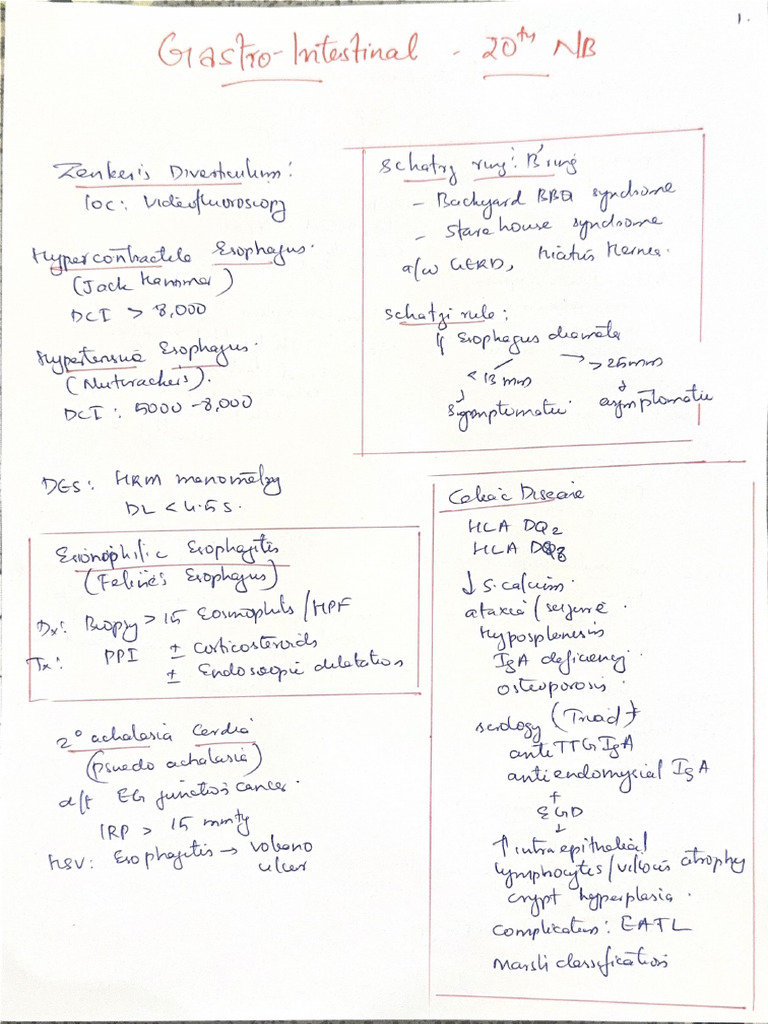 1.
Gastro-Intestinal - 20th NB
Zenker's Diverticulum:
IOC: Videofluoroscopy
Hypercontractile Esophagus.
(Jack Hammer)
DCI > 8,000
Hypertensive Esophagus.
(Nutcracker's).
DCI: 5000 - 8,000
DES: HRM manometry
DL < 4.5 s.
Eosinophilic Esophagitis
(Feline's Esophagus)
Dx: Biopsy > 15 Eosinophils/HPF
Tx: PPI ± Corticosteroids
± Endoscopic dilatation
2° achalasia Cardia
(psuedo achalasia)
d/t EG junction cancer.
IRP > 15 mmHg
HSV: Esophagitis → Volcano
ulcer
Schatzg ring: 'B' ring
- Backyard BBQ syndrome
- Steak house syndrome
a/w GERD, Hiatus Hernia.
Schatzi rule:
If Esophagus diameter
< 13 mm > 25 mm
↓ ↓
Symptomatic. asymptomatic
Celiac Disease
HLA DQ2
HLA DQ8
↓ S. calcium.
ataxia / seizure.
Hyposplenism
IgA deficiency.
osteoporosis.
serology (Triad)
anti TTG IgA
anti endomysial IgA
+
EGD
↓
↑ intraepithelial
lymphocytes/villous atrophy
crypt hyperplasia.
Complication: EATL
Marsh classification